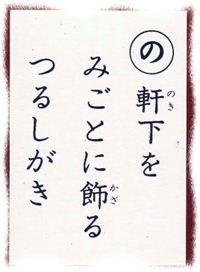 の
軒下を
みごとに飾る
つるしがき
のき
かざ